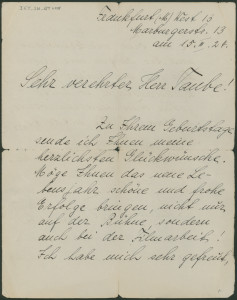 Frankfurt a/M West 13
Marburgerstr. 13
am 15.11.24.
Sehr verehrter, Herr Taube!
Zu Ihrem Geburtstage
sende ich Ihnen meine
herzlichsten Glückwünsche.
Möge Ihnen das neue Le-
bensjahr schöne und frohe
Erfolge bringen, nicht nur
auf der Bühne, sondern
auch bei der Filmarbeit!
Ich habe mich sehr gefreut,